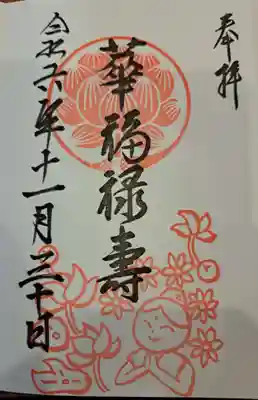 奉拝
華福禄壽
令和六年十一月三十日